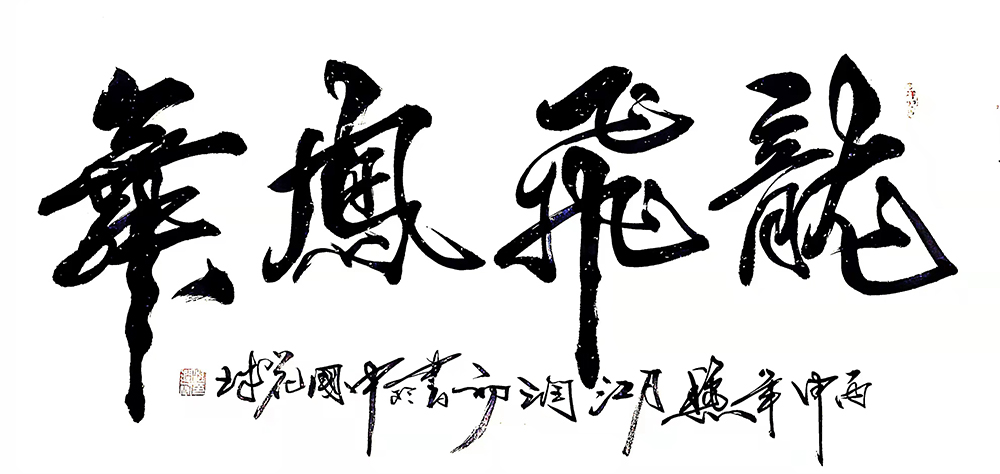 龍飛鳳舞
丙申年臘月江潤書於中國花城